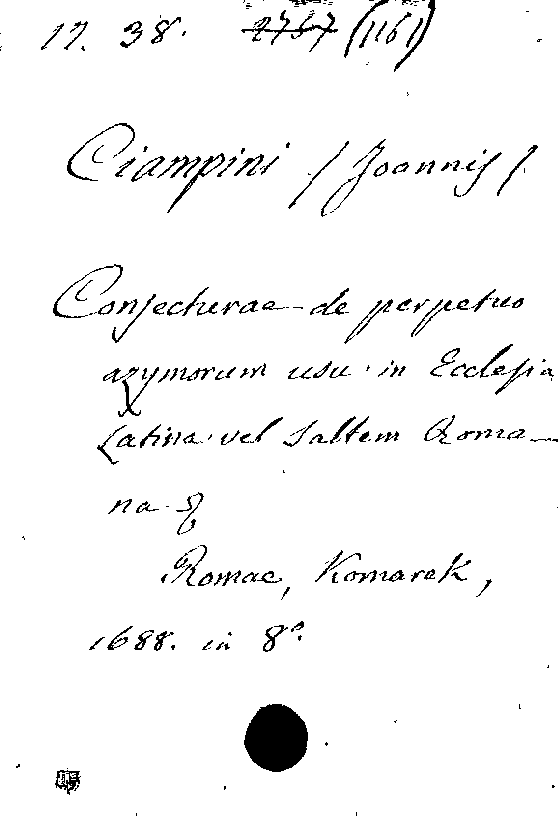 17. 38. 2767 (1161)
Ciampini / Joannis /.
Conjecturae de perpetuo
azymorum usu in Ecclesia
Latina vel saltem Roma-
na
Romae, Komarek,
1688. in 8°.